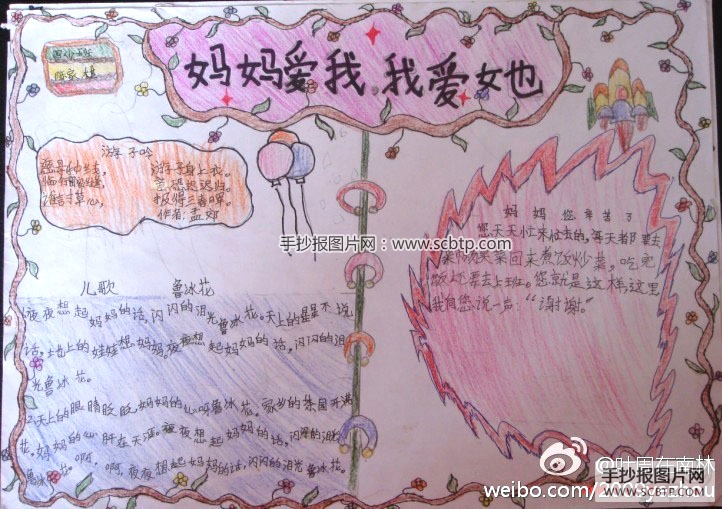 妈妈爱我,我爱她
游子吟
慈母手中线, 游子身上衣。
临行密密缝, 意恐迟迟归。
谁言寸草心, 报得三春晖。
作者:孟郊
手抄报图片网:www.scbtp.com
儿歌 鲁冰花
夜夜想起妈妈的话,闪闪的泪光鲁冰花。天上的星星不说
话,地上的娃娃想妈妈,夜夜想起妈妈的话,闪闪的泪
光鲁冰花。
天上的眼睛眨眨,妈妈的心呀鲁冰花。家乡的茶园开满
花,妈妈的心肝在天涯。夜夜想起妈妈的话,闪闪的泪光
鲁冰花。啊,啊,夜夜想起妈妈的话,闪闪的泪光鲁冰花。
妈妈您辛苦了
您天天忙来忙去的,每天都要去
菜场买菜回来煮饭炒菜,吃完
饭还要去上班。您就是这样,这里
我向您说一声:“谢谢。”
@叶周东南林
手抄报图片网
WWW.SCBTP.COM
weibo.com/